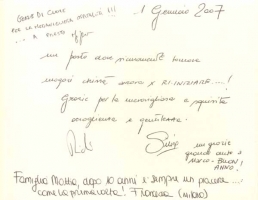 GRAZIE DI CUORE
PER LA MERAVIGLIOSA OSPITALITÀ !!!
... A PRESTO
1° Gennaio 2007
un posto dove sicuramente tornare
magari chissà ancora x RI-INIZIARE ....!
Grazie per la meravigliosa e squisita
accoglienza e gentilezza.
Silvia
un grazie
grande anche a
MARCO - BUON
ANNO!
Famiglia Mossa, dopo 10 anni è sempre un piacere ...
come la prima volta! Francesca (milano)